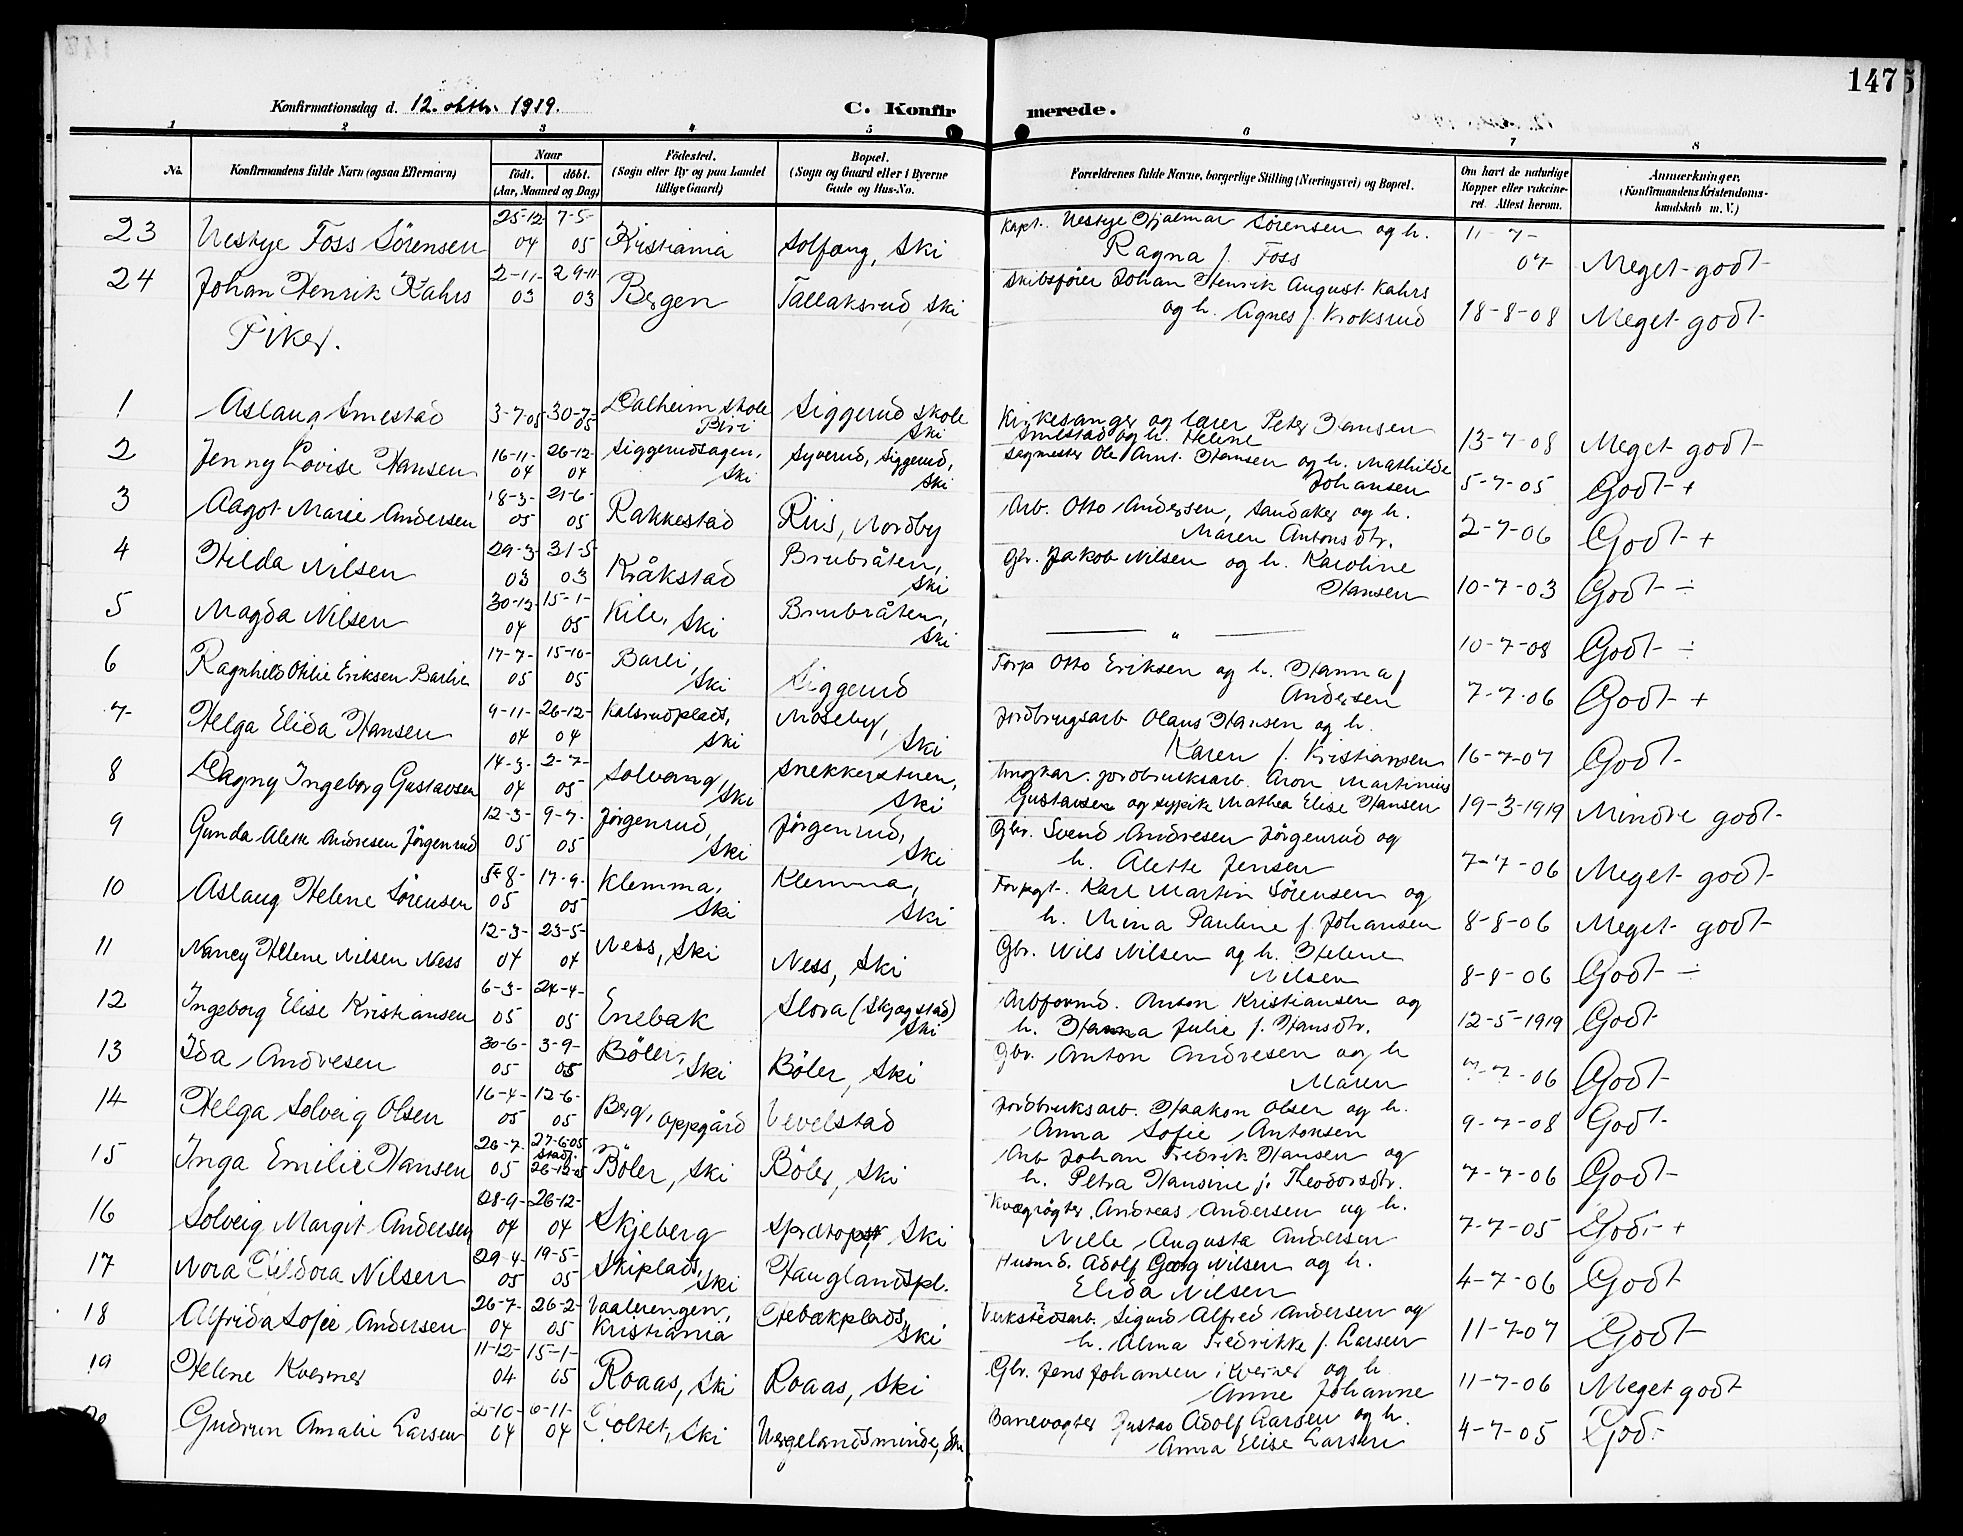 147
Konfirmationsdag d. 12. oktbr. 1919.
C. Konfirmerede.
1 2 3 4 5 6 7 8
No.
Konfirmandens fulde Navn (ogsaa Efternavn)
Naar
født. døbt.
(Aar, Maaned og Dag)
Födested.
(Sogn eller By og paa Landet
tillige Gaard)
Bopæl.
(Sogn og Gaard eller i Byerne
Gade og Hus-No.
Forældrenes fulde Navne, borgerlige Stilling (Næringsvei) og Bopæl.
Om havt de naturlige
Kopper eller vaksine-
ret. Attest herom.
Anmærkninger.
(Konfirmandens Kristendoms-
kundskab m. V.)
25-12 7-5-
23 Nestye Foss Sörensen 04 05 Kristiania Solfang, Ski
Kapt. Nestye Hjalmar Sörensen og h. 11-7-
Ragna f. Foss 07 Meget godt
2-11- 29-11
24 Johan Henrik Kahrs 03 03 Bergen Tallaksrud, Ski
Skibsfører Johan Henrik August Kahrs
og h. Agnes f. Kroksrud 18-8-08 Meget godt
Piker.
1 Aslaug Smestad 3-7-05 30-7-05 Dalheim skole Biri Siggerud skole Ski
Kirkesanger og lærer Peter Hansen
Smestad og h. Helene 13-7-08 Meget godt
2 Jenny Lovise Hansen 16-11-04 26-12-04 Siggerudsagen, Ski Syverud, Siggerud, Ski
Sagmester Ole Arnt Hansen og h. Mathilde
Johansen 5-7-05 Godt +
3 Aagot Marie Andersen 18-3-05 21-6-05 Rakkestad Riis, Nordby
Arb. Otto Andersen, Sandaker og h.
Maren Antonsdtr. 2-7-06 Godt +
4 Hilda Nilsen 29-3-03 31-5-03 Kråkstad Brubråten, Ski
Gbr. Jakob Nilsen og h. Karoline
Hansen 10-7-03 Godt ÷
5 Magda Nilsen 30-12-04 15-1-05 Kile, Ski Brubråten, Ski
— " — 10-7-08 Godt ÷
6 Ragnhild Otilie Eriksen Barlie 17-7-05 15-10-05 Barli, Ski Siggerud
Forp Otto Eriksen og h. Hanna f
Andersen 7-7-06 Godt +
7 Helga Elida Hansen 9-11-04 26-12-04 Kalsrudplads, Ski Moseby, Ski
Jordbrugsarb Olaus Hansen og h.
Karen f. Kristiansen 16-7-07 Godt
8 Dagny Ingeborg Gustavsen 14-3-04 2-7-05 Solvang, Ski Snekkerstuen, Ski
Ungkar. jordbruksarb. Aron Martinius
Gustavsen og sypike Mathea Elise Hansen 19-3-1919 Mindre godt
9 Gunda Alette Andresen Jörgenrud 12-3-05 9-7-05 Jörgenrud, Ski Jörgenrud, Ski
Gbr. Svend Andresen Jörgenrud og
h. Alette Jensen 7-7-06 Meget godt
10 Aslaug Helene Sörensen 5-8-05 17-9-05 Klemma, Ski Klemma, Ski
Forpgt. Karl Martin Sörensen og
h. Mina Pauline f. Johansen 8-8-06 Meget godt
11 Nancy Helene Nilsen Ness 12-3-04 23-5-04 Ness, Ski Ness, Ski
Gbr. Nils Nilsen og h. Helene
Nilsen 8-8-06 Godt ÷
12 Ingeborg Elise Kristiansen 6-3-05 24-4-05 Enebak Slora (Skjogstad) Ski
Arbformd. Anton Kristiansen og
h. Hanna Julie f. Hansdtr. 12-5-1919 Godt
13 Ida Andresen 30-6-05 3-9-05 Böler, Ski Böler, Ski
Gbr. Anton Andresen og h
Maren 7-7-06 Godt
14 Helga Solveig Olsen 16-4-05 12-6-05 Berg, Oppgård Vevelstad
Jordbruksarb. Haakon Olsen og h.
Anna Sofie Antonsen 9-7-08 Godt
15 Inga Emilie Hansen 26-7-05 27-6-05 stadf. 26-12-05 Böler, Ski Böler, Ski
Arb Johan Fredrik Hansen og
h. Petra Hansine f. Theodorsdtr. 7-7-06 Godt
16 Solveig Margit Andersen 28-9-04 26-12-04 Skjeberg Ski
Kvægrögter Andreas Andersen og h.
Nille Augusta Andersen 7-7-05 Godt +
17 Nora Nilsen 29-4-05 19-5-05 Skiplads, Ski Hauglandspl.
Husmd. Adolf Georg Nilsen og h.
Elida Nilsen 4-7-06 Godt
18 Alfrida Sofie Andersen 26-7-04 26-2-05 Vaalerengen, Kristiania Stebækplads, Ski
Verkstedsarb. Sigurd Alfred Andersen og
h. Alma Fredrikke f. Larsen 11-7-07 Godt
19 Helene Kverner 11-12-04 15-1-05 Roaas, Ski Roaas, Ski
Gbr. Jens Johansen i Kverner og h
Anne Johanne 11-7-06 Meget godt
Gudrun Amalie Larsen 04 6-11-04 Ski Vergelandsminde, Ski
Banevogter Gustav Adolf Larsen og h.
Anna Elise Larsen 4-7-05 Godt